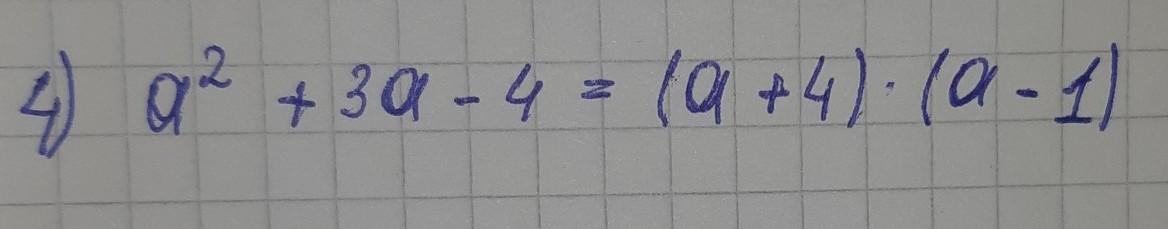 4) a² + 3a - 4 = (a + 4) · (a - 1)